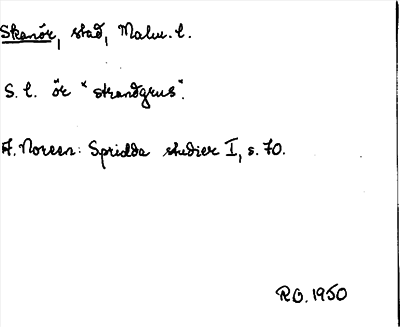 Skanör, stad, Malm. l.
S. l. ör "strandgrus".
A. Noreen: Spridda studier I, s. 70.
R O. 1950